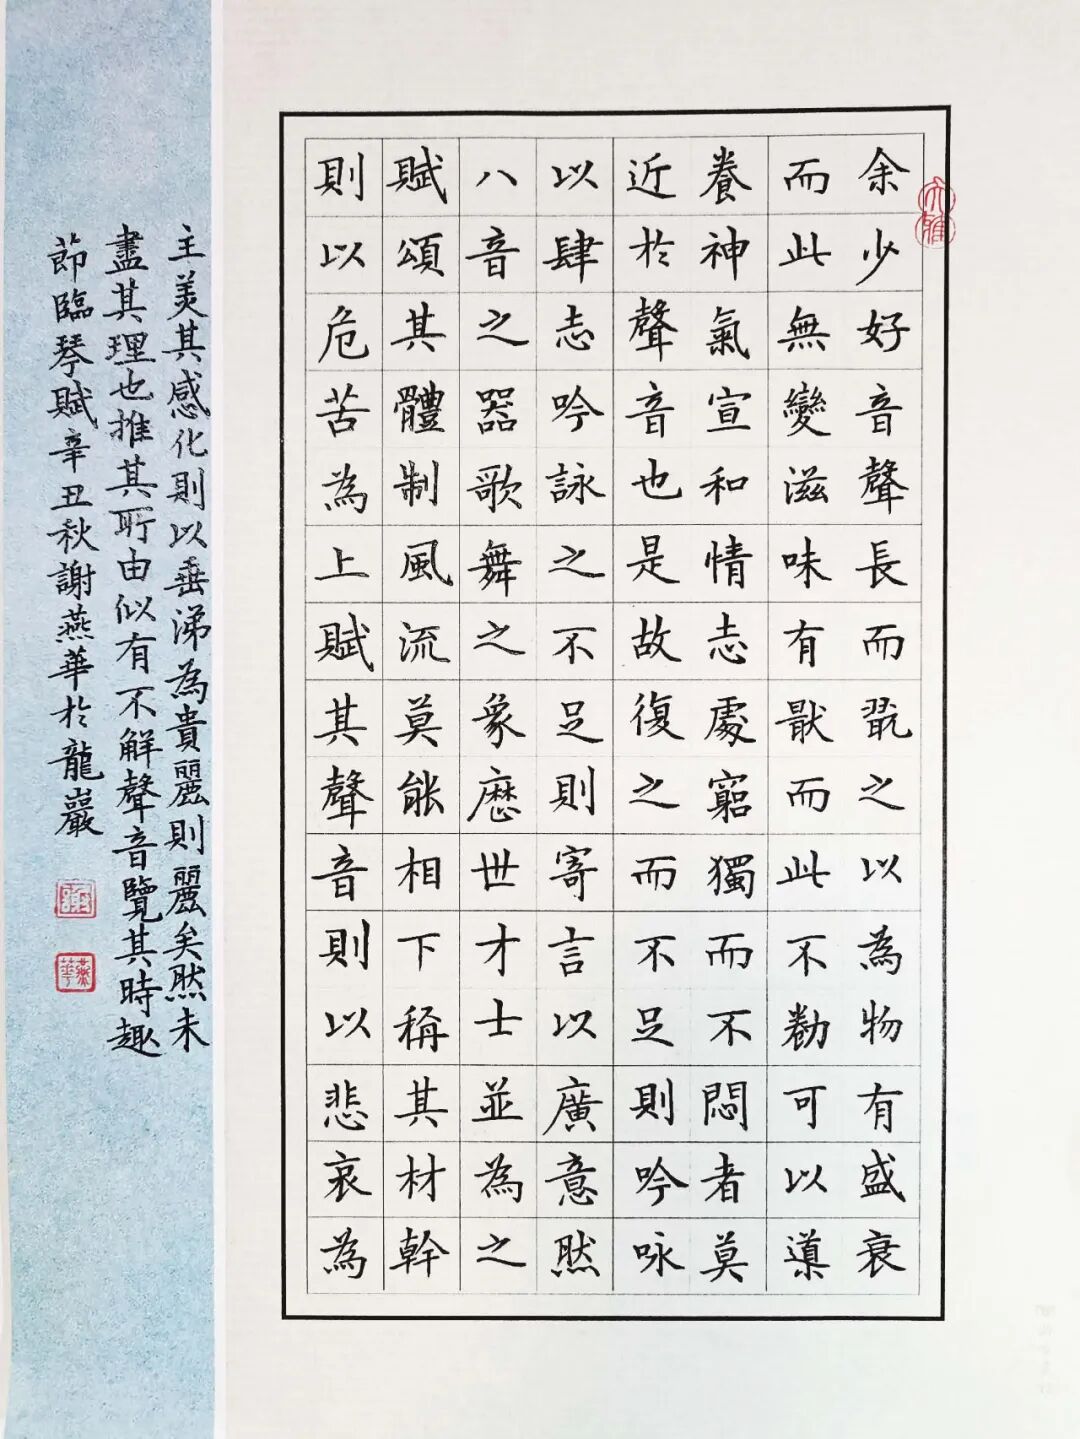 余少好音聲長而翫之以為物有盛衰
而此無變滋味有猒而此不勌可以導
養神氣宣和情志處窮獨而不悶者莫
近於聲音也是故復之而不足則吟咏
以肆志吟詠之不足則寄言以廣意然
八音之器歌舞之象歷世才士並為之
賦頌其體制風流莫能相下稱其材幹
則以危苦為上賦其聲音則以悲哀為
主美其感化則以垂涕為貴麗則麗矣然未
盡其理也推其所由似有不解聲音覽其時趣
節臨琴賦辛丑秋謝燕華於龍巖
大雅
謝
燕華